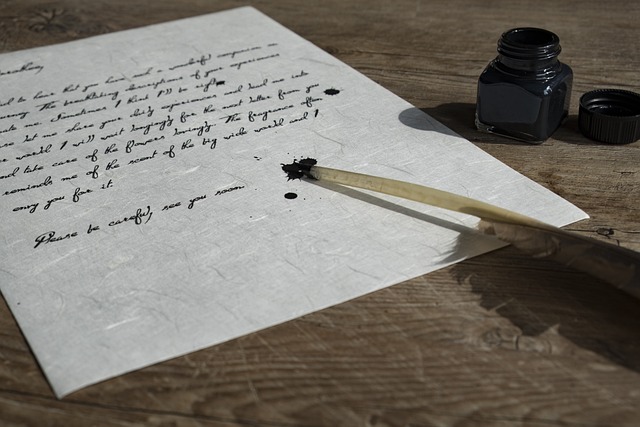 to hear that you have such a wonderful companion on
The breathtaking descriptions of your experiences
me. Sometimes I think it'll be right
me share your daily experiences and lead me into
world. I will wait longingly for the next letter from you
and take care of the flowers lovingly. The fragrance of
reminds me of the scent of the big wide world and I
envy you for it.
Please be careful, see you soon